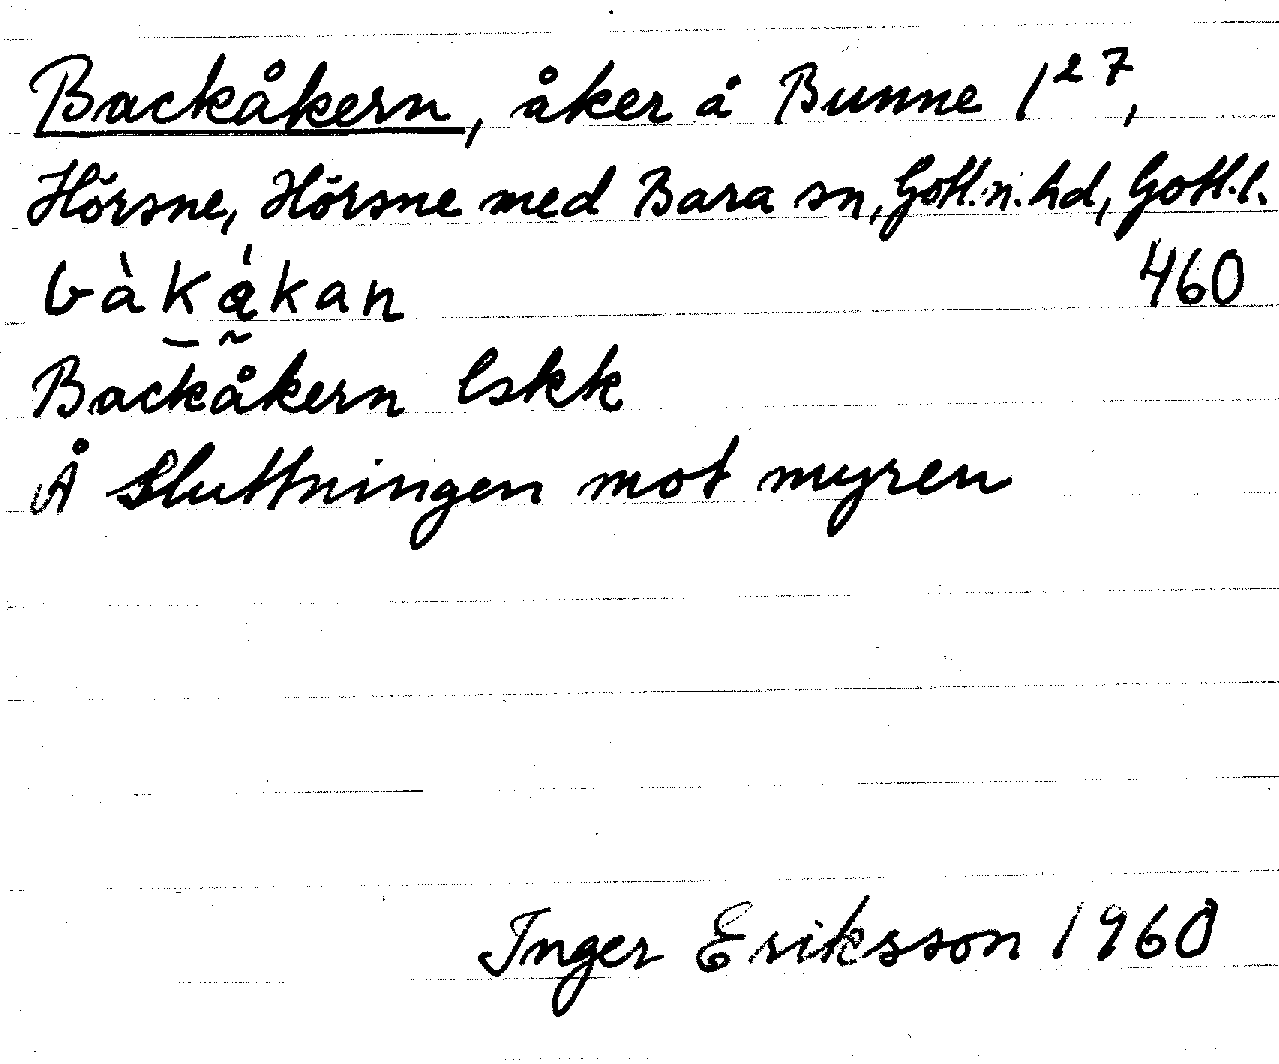 Backåkern, åker å Bunne 1²⁷,
Hörsne, Hörsne med Bara sn, Gotl. n. hd, Gotl. l.
bàkákan 460
Backåkern lskk
Å Sluttningen mot myren
Inger Eriksson 1960